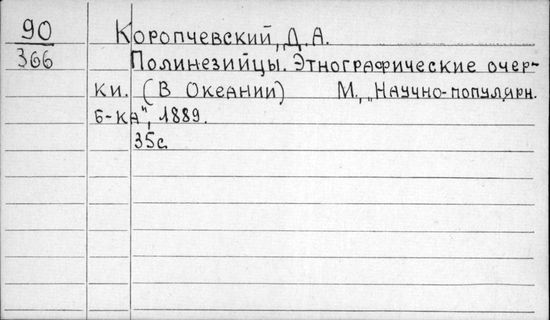 90 Коропчевский, Д.А.
366 Полинезийцы. Этнографические очер-
ки. (В Океании) М., „Научно-популярн.
б-ка", 1889.
35с.